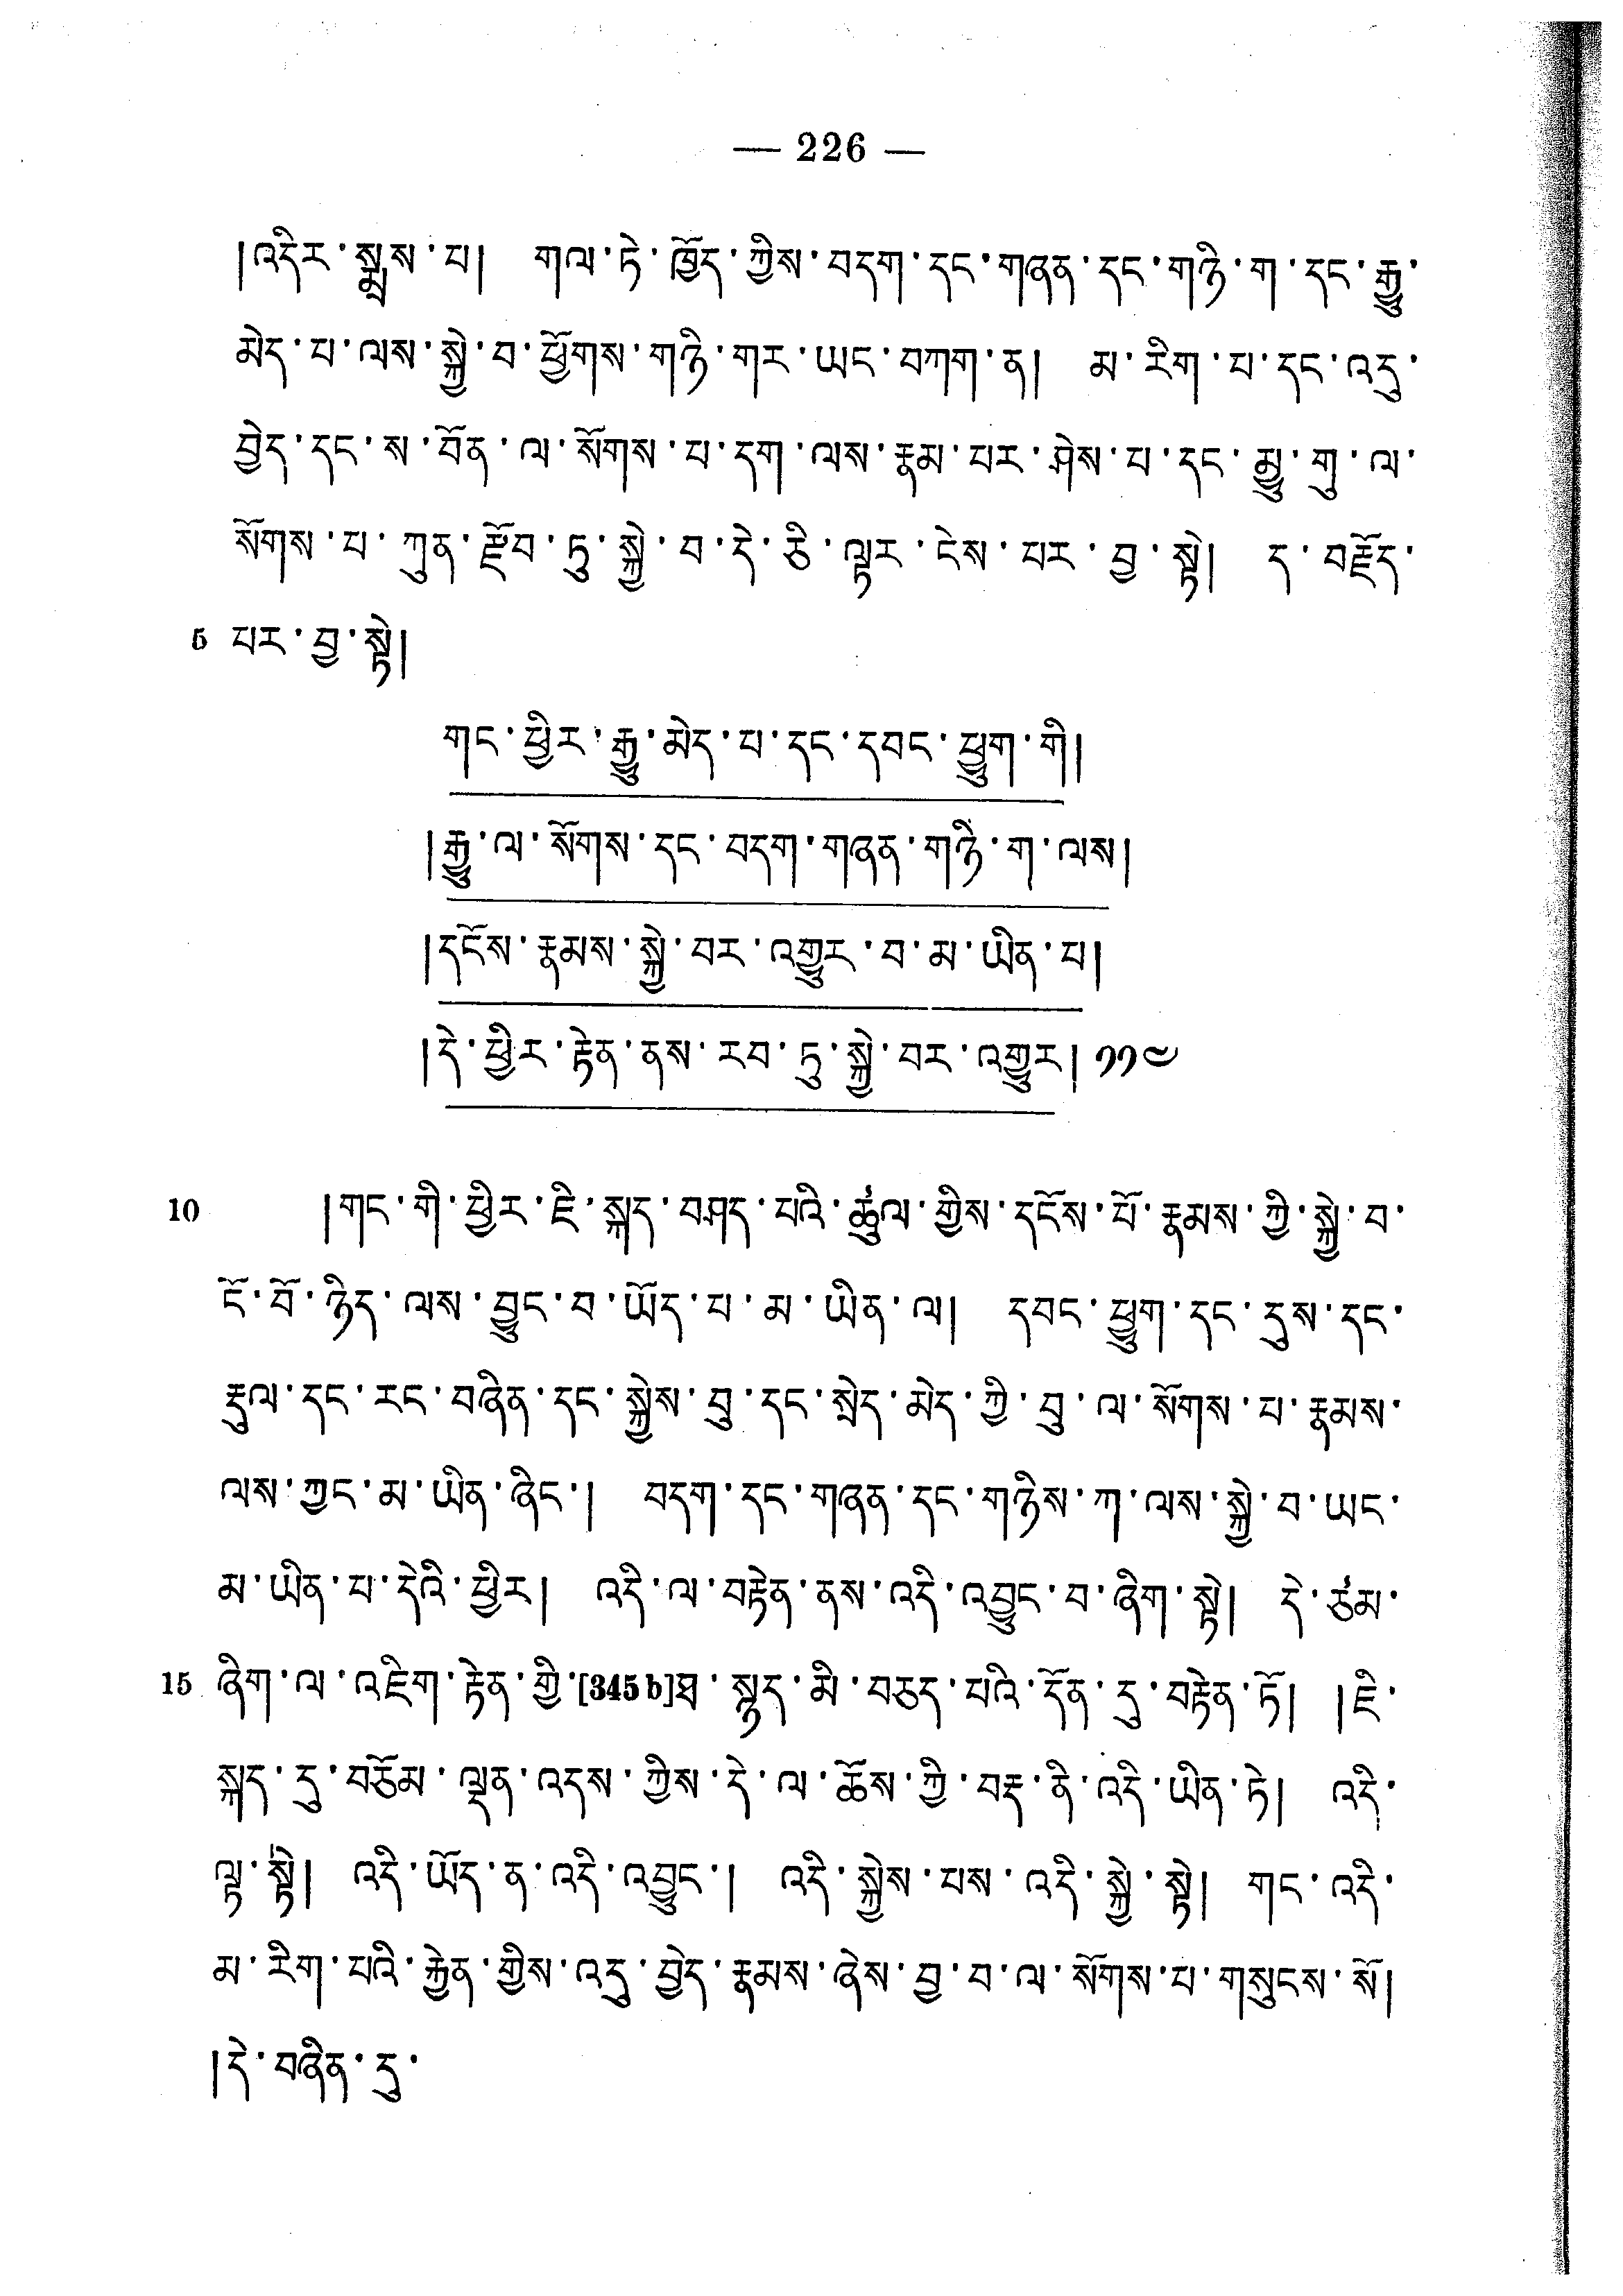 — 226 —
།འདིར་སྨྲས་པ། གལ་ཏེ་ཁྱོད་ཀྱིས་བདག་དང་གཞན་དང་གཉི་ག་དང་རྒྱུ་
མེད་པ་ལས་སྐྱེ་བ་ཕྱོགས་གཉི་གར་ཡང་བཀག་ན། མ་རིག་པ་དང་འདུ་
བྱེད་དང་ས་བོན་ལ་སོགས་པ་དག་ལས་རྣམ་པར་ཤེས་པ་དང་མྱུ་གུ་ལ་
སོགས་པ་ཀུན་རྫོབ་ཏུ་སྐྱེ་བ་དེ་ཅི་ལྟར་ངེས་པར་བྱ་སྟེ། ད་བརྗོད་
5 པར་བྱ་སྟེ།
གང་ཕྱིར་རྒྱུ་མེད་པ་དང་དབང་ཕྱུག་གི།
།རྒྱུ་ལ་སོགས་དང་བདག་གཞན་གཉི་ག་ལས།
།དངོས་རྣམས་སྐྱེ་བར་འགྱུར་བ་མ་ཡིན་པ།
།དེ་ཕྱིར་རྟེན་ནས་རབ་ཏུ་སྐྱེ་བར་འགྱུར། ༡༡༤
10 །གང་གི་ཕྱིར་ཇི་སྐད་བཤད་པའི་ཚུལ་གྱིས་དངོས་པོ་རྣམས་ཀྱི་སྐྱེ་བ་
ངོ་བོ་ཉིད་ལས་བྱུང་བ་ཡོད་པ་མ་ཡིན་ལ། དབང་ཕྱུག་དང་དུས་དང་
རྡུལ་དང་རང་བཞིན་དང་སྐྱེས་བུ་དང་སྲེད་མེད་ཀྱི་བུ་ལ་སོགས་པ་རྣམས་
ལས་ཀྱང་མ་ཡིན་ཞིང་། བདག་དང་གཞན་དང་གཉིས་ཀ་ལས་སྐྱེ་བ་ཡང་
མ་ཡིན་པ་དེའི་ཕྱིར། འདི་ལ་བརྟེན་ནས་འདི་འབྱུང་བ་ཞིག་སྟེ། དེ་ཙམ་
15 ཞིག་ལ་འཇིག་རྟེན་གྱི་[345 b]ཐ་སྙད་མི་བཅད་པའི་དོན་དུ་བརྟེན་ཏོ། །ཇི་
སྐད་དུ་བཅོམ་ལྡན་འདས་ཀྱིས་དེ་ལ་ཆོས་ཀྱི་བརྡ་ནི་འདི་ཡིན་ཏེ། འདི་
ལྟ་སྟེ། འདི་ཡོད་ན་འདི་འབྱུང་། འདི་སྐྱེས་པས་འདི་སྐྱེ་སྟེ། གང་འདི་
མ་རིག་པའི་རྐྱེན་གྱིས་འདུ་བྱེད་རྣམས་ཞེས་བྱ་བ་ལ་སོགས་པ་གསུངས་སོ།
།དེ་བཞིན་དུ་